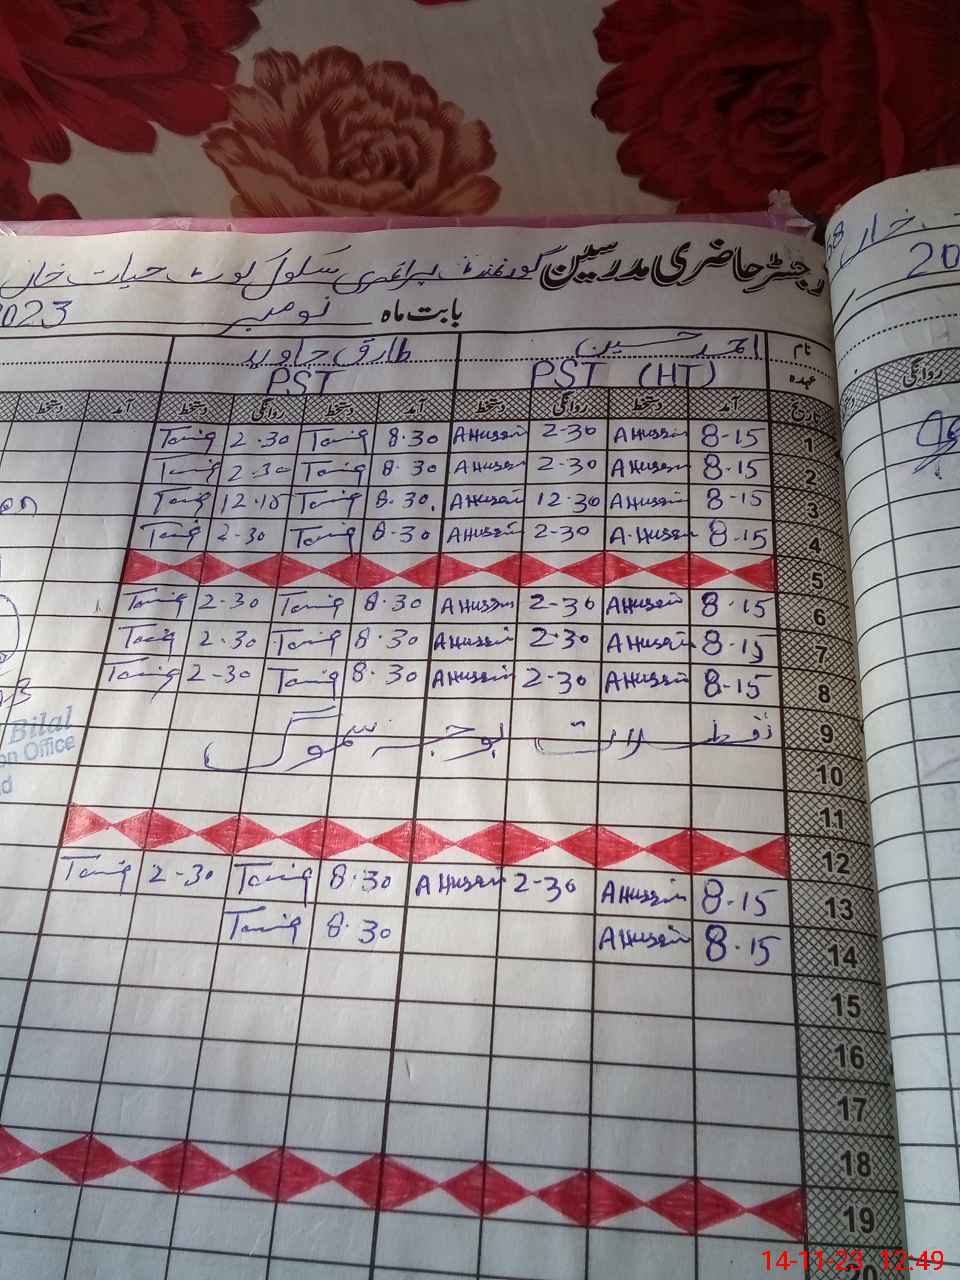 رجسٹر حاضری مدرسین گورنمنٹ پرائمری سکول کوٹ حیات خان
بابت ماہ نومبر 2023
نام احمد حسین طارق جاوید
عہدہ PST (HT) PST
تاریخ آمد دستخط روانگی دستخط آمد دستخط روانگی دستخط آمد دستخط
1 8-15 AHussain 2-30 AHussain 8.30 Tariq 2.30 Tariq
2 8-15 AHussain 2-30 AHussain 8.30 Tariq 2.30 Tariq
3 8-15 AHussain 12-30 AHussain 8.30 Tariq 12.15 Tariq
4 8-15 A.Hussain 2-30 AHussain 8.30 Tariq 2-30 Tariq
5
6 8-15 AHussain 2-30 AHussain 8.30 Tariq 2-30 Tariq
7 8-15 AHussain 2-30 AHussain 8.30 Tariq 2-30 Tariq
8 8-15 AHussain 2-30 AHussain 8.30 Tariq 2-30 Tariq
9 بوجہ سموگ
10
11
12
13 8-15 AHussain 2-30 AHussain 8.30 Tariq 2-30 Tariq
14 8-15 AHussain 8.30 Tariq
15
16
17
18
19
20
روانگی
Bilal
on Office
14-11-23 12:49